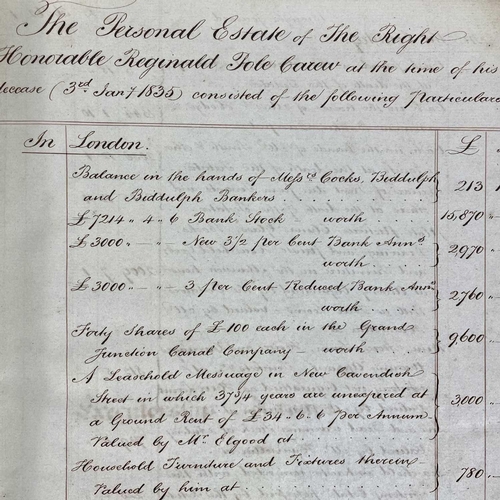 The Personal Estate of The Right
Honorable Reginald Pole Carew at the time of his
decease (3rd Jany 1835) consisted of the following Particulars
In London. £
Balance in the hands of Messrs Cocks, Biddulph
and Biddulph Bankers . . . 213 "
£7214 " 4 " 6 Bank Stock worth . . . 15,870 "
£3000 " — " — New 3 1/2 per Cent Bank Anns
worth . . . 2,970 "
£3000 " - " - 3 per Cent Reduced Bank Anns
worth . . . 2,760 "
Forty Shares of £100 each in the Grand
Junction Canal Company — worth . . . 9,600 "
A Leasehold Messuage in New Cavendish
Street in which 37 3/4 years are unexpired at
a Ground Rent of £34 " 6 " 6 Per Annum
Valued by Mr. Elgood at . . . 3,000 "
Household Furniture and Fixtures therein
Valued by him at . . . 780 "